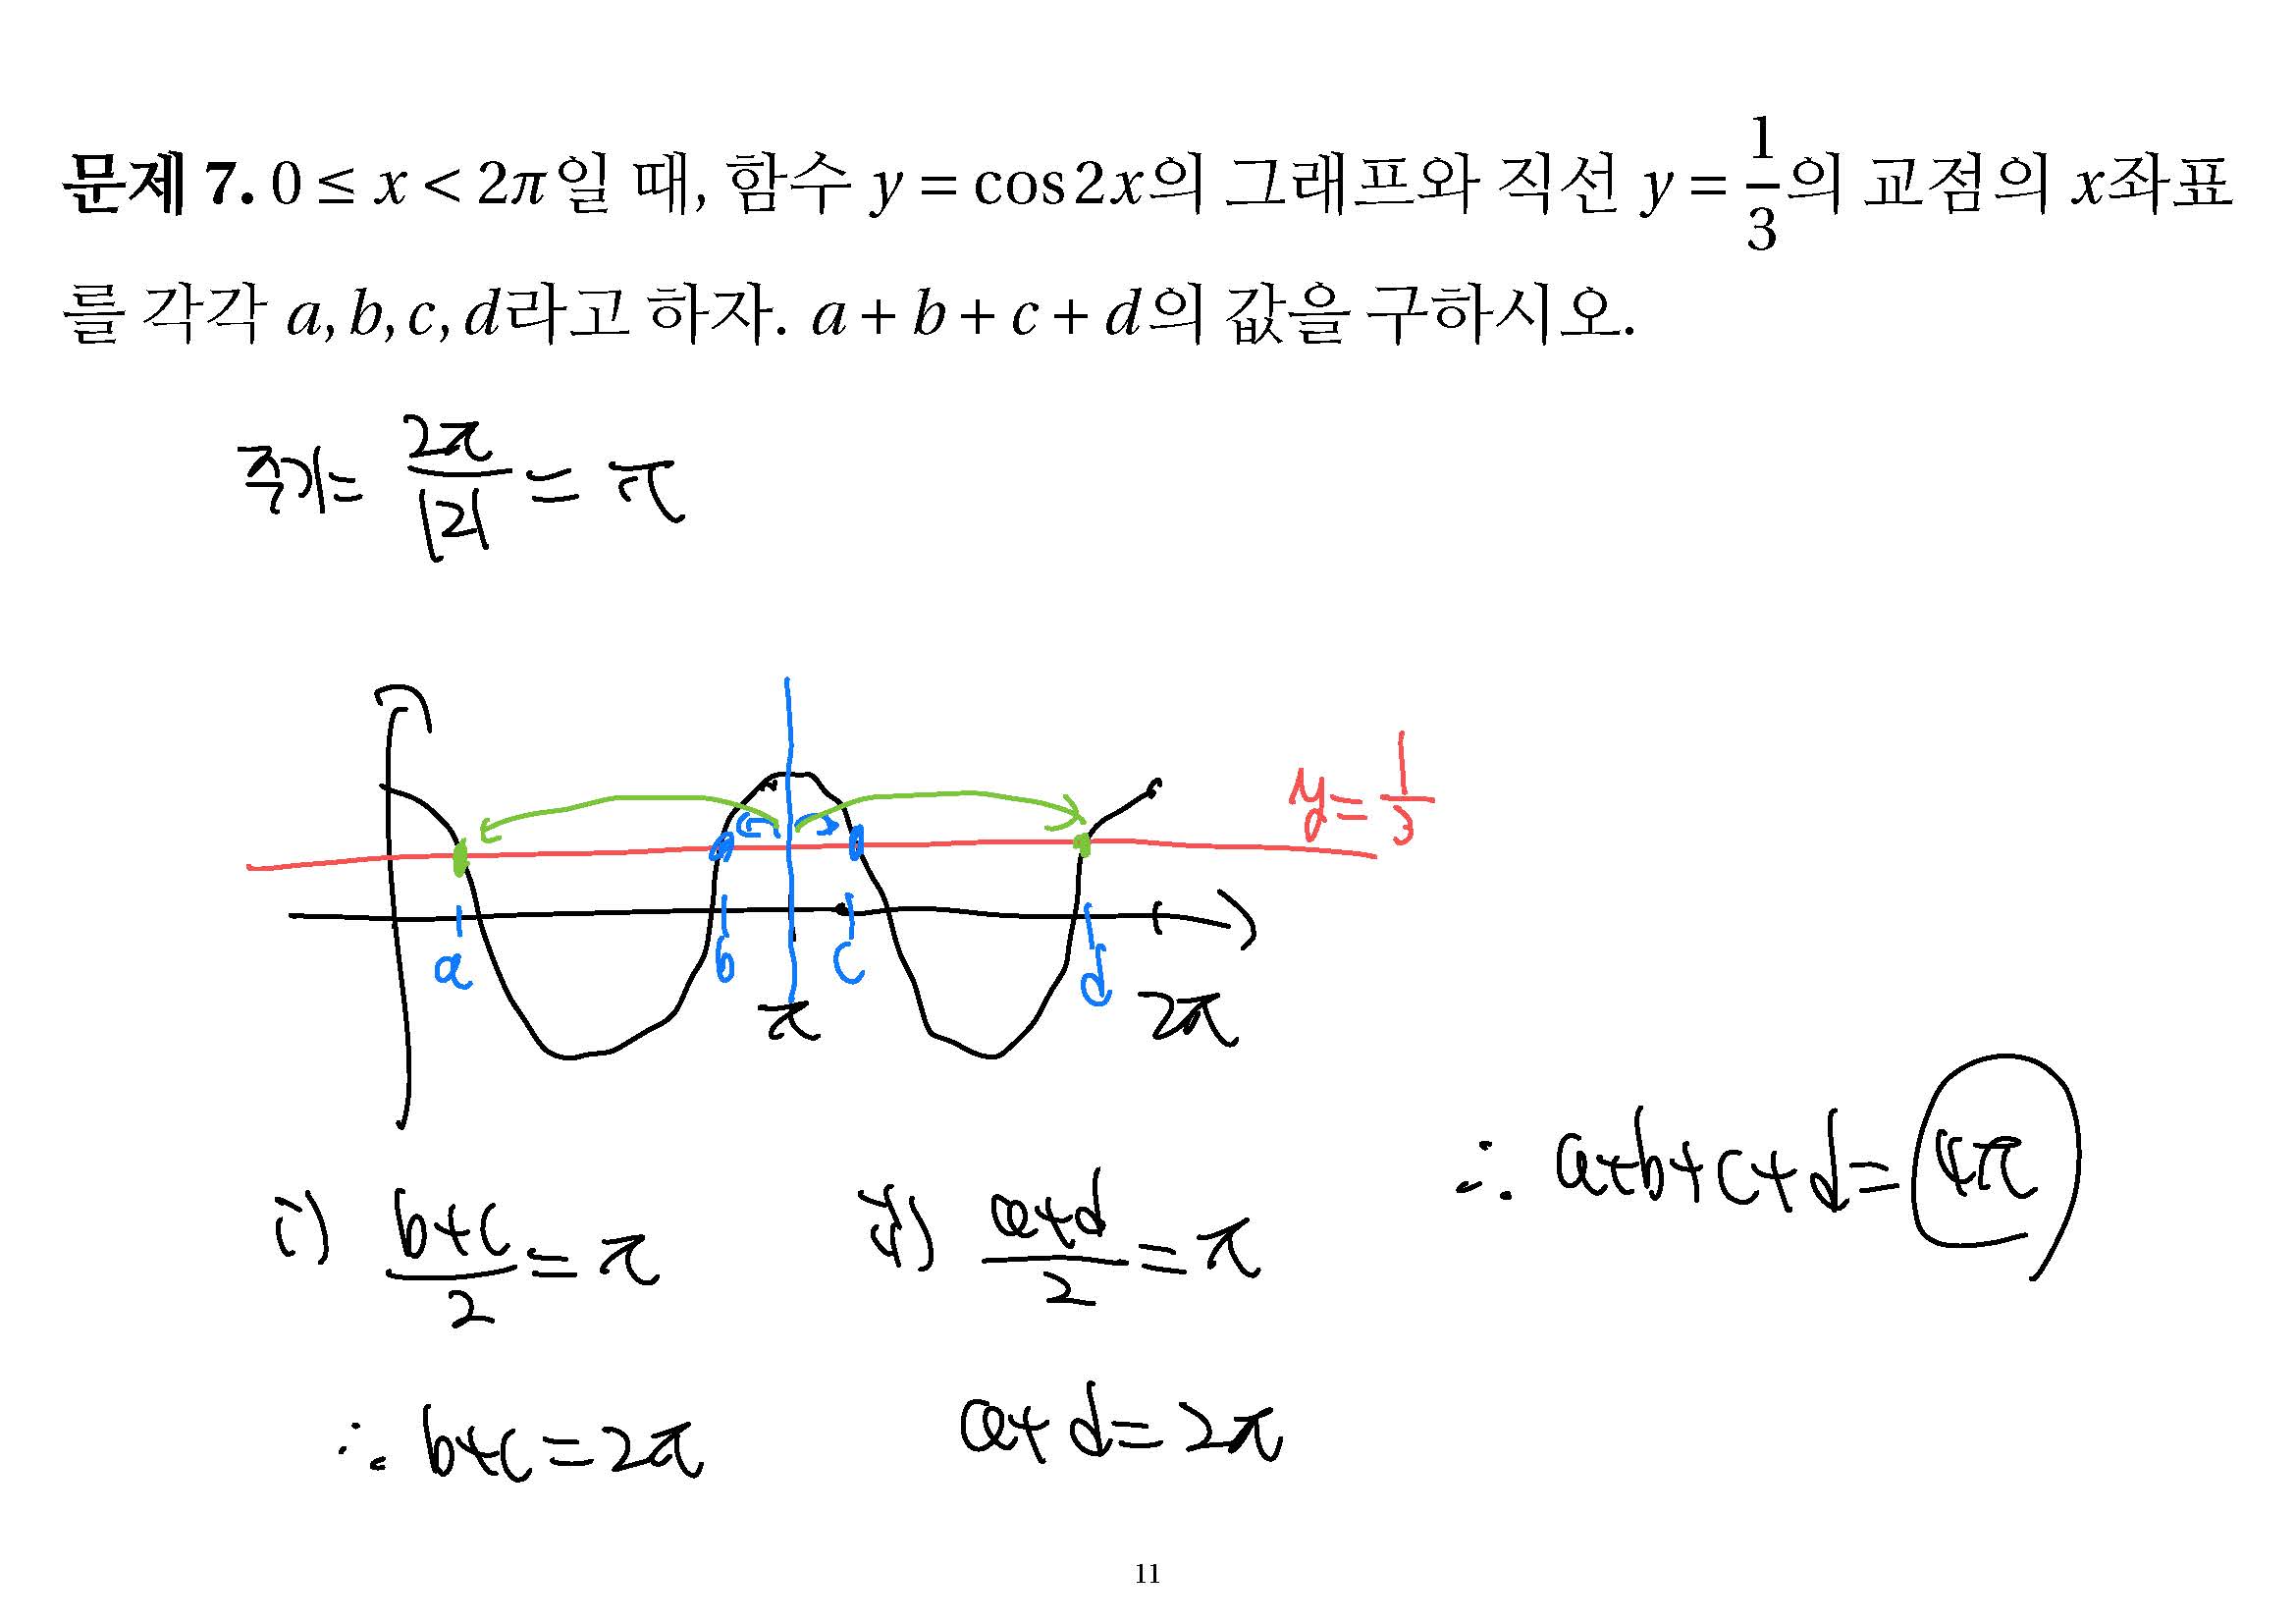 문제 7. 0 ≤ x < 2π일 때, 함수 y = cos 2x의 그래프와 직선 y = 1/3의 교점의 x좌표
를 각각 a, b, c, d라고 하자. a + b + c + d의 값을 구하시오.
주기 = 2π/|2| = π
y = 1/3
a b c d
π 2π
i) (b+c)/2 = π ii) (a+d)/2 = π ∴ a+b+c+d = 4π
∴ b+c = 2π a+d = 2π
11